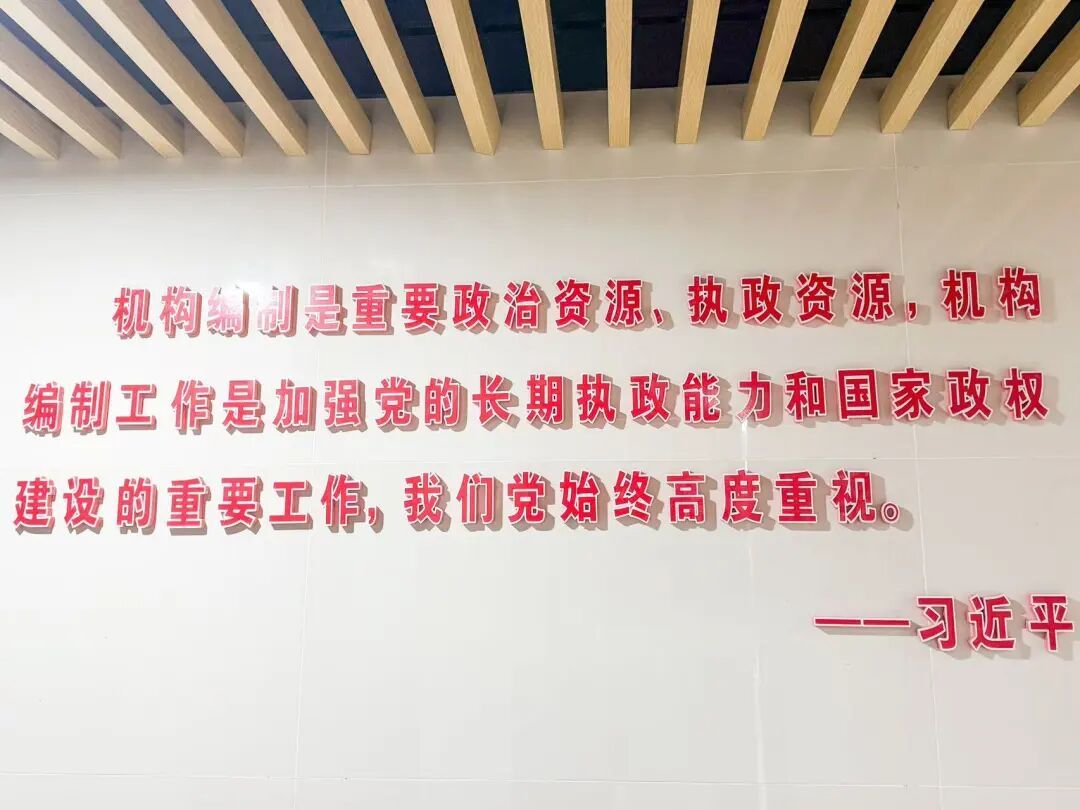 机构编制是重要政治资源、执政资源，机构
编制工作是加强党的长期执政能力和国家政权
建设的重要工作，我们党始终高度重视。
——习近平